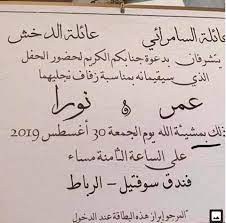 عائلة السامرائي عائلة الدخش
يتشرفان بدعوة جنابكم الكريم لحضور الحفل
الذي سيقيمانه بمناسبة زفاف نجليهما
عمر و نورا
ذلك بمشيئة الله يوم الجمعة 30 أغسطس 2019
على الساعة الثامنة مساء
فندق سوفتيل - الرباط
المرجو إبراز هذه البطاقة عند الدخول